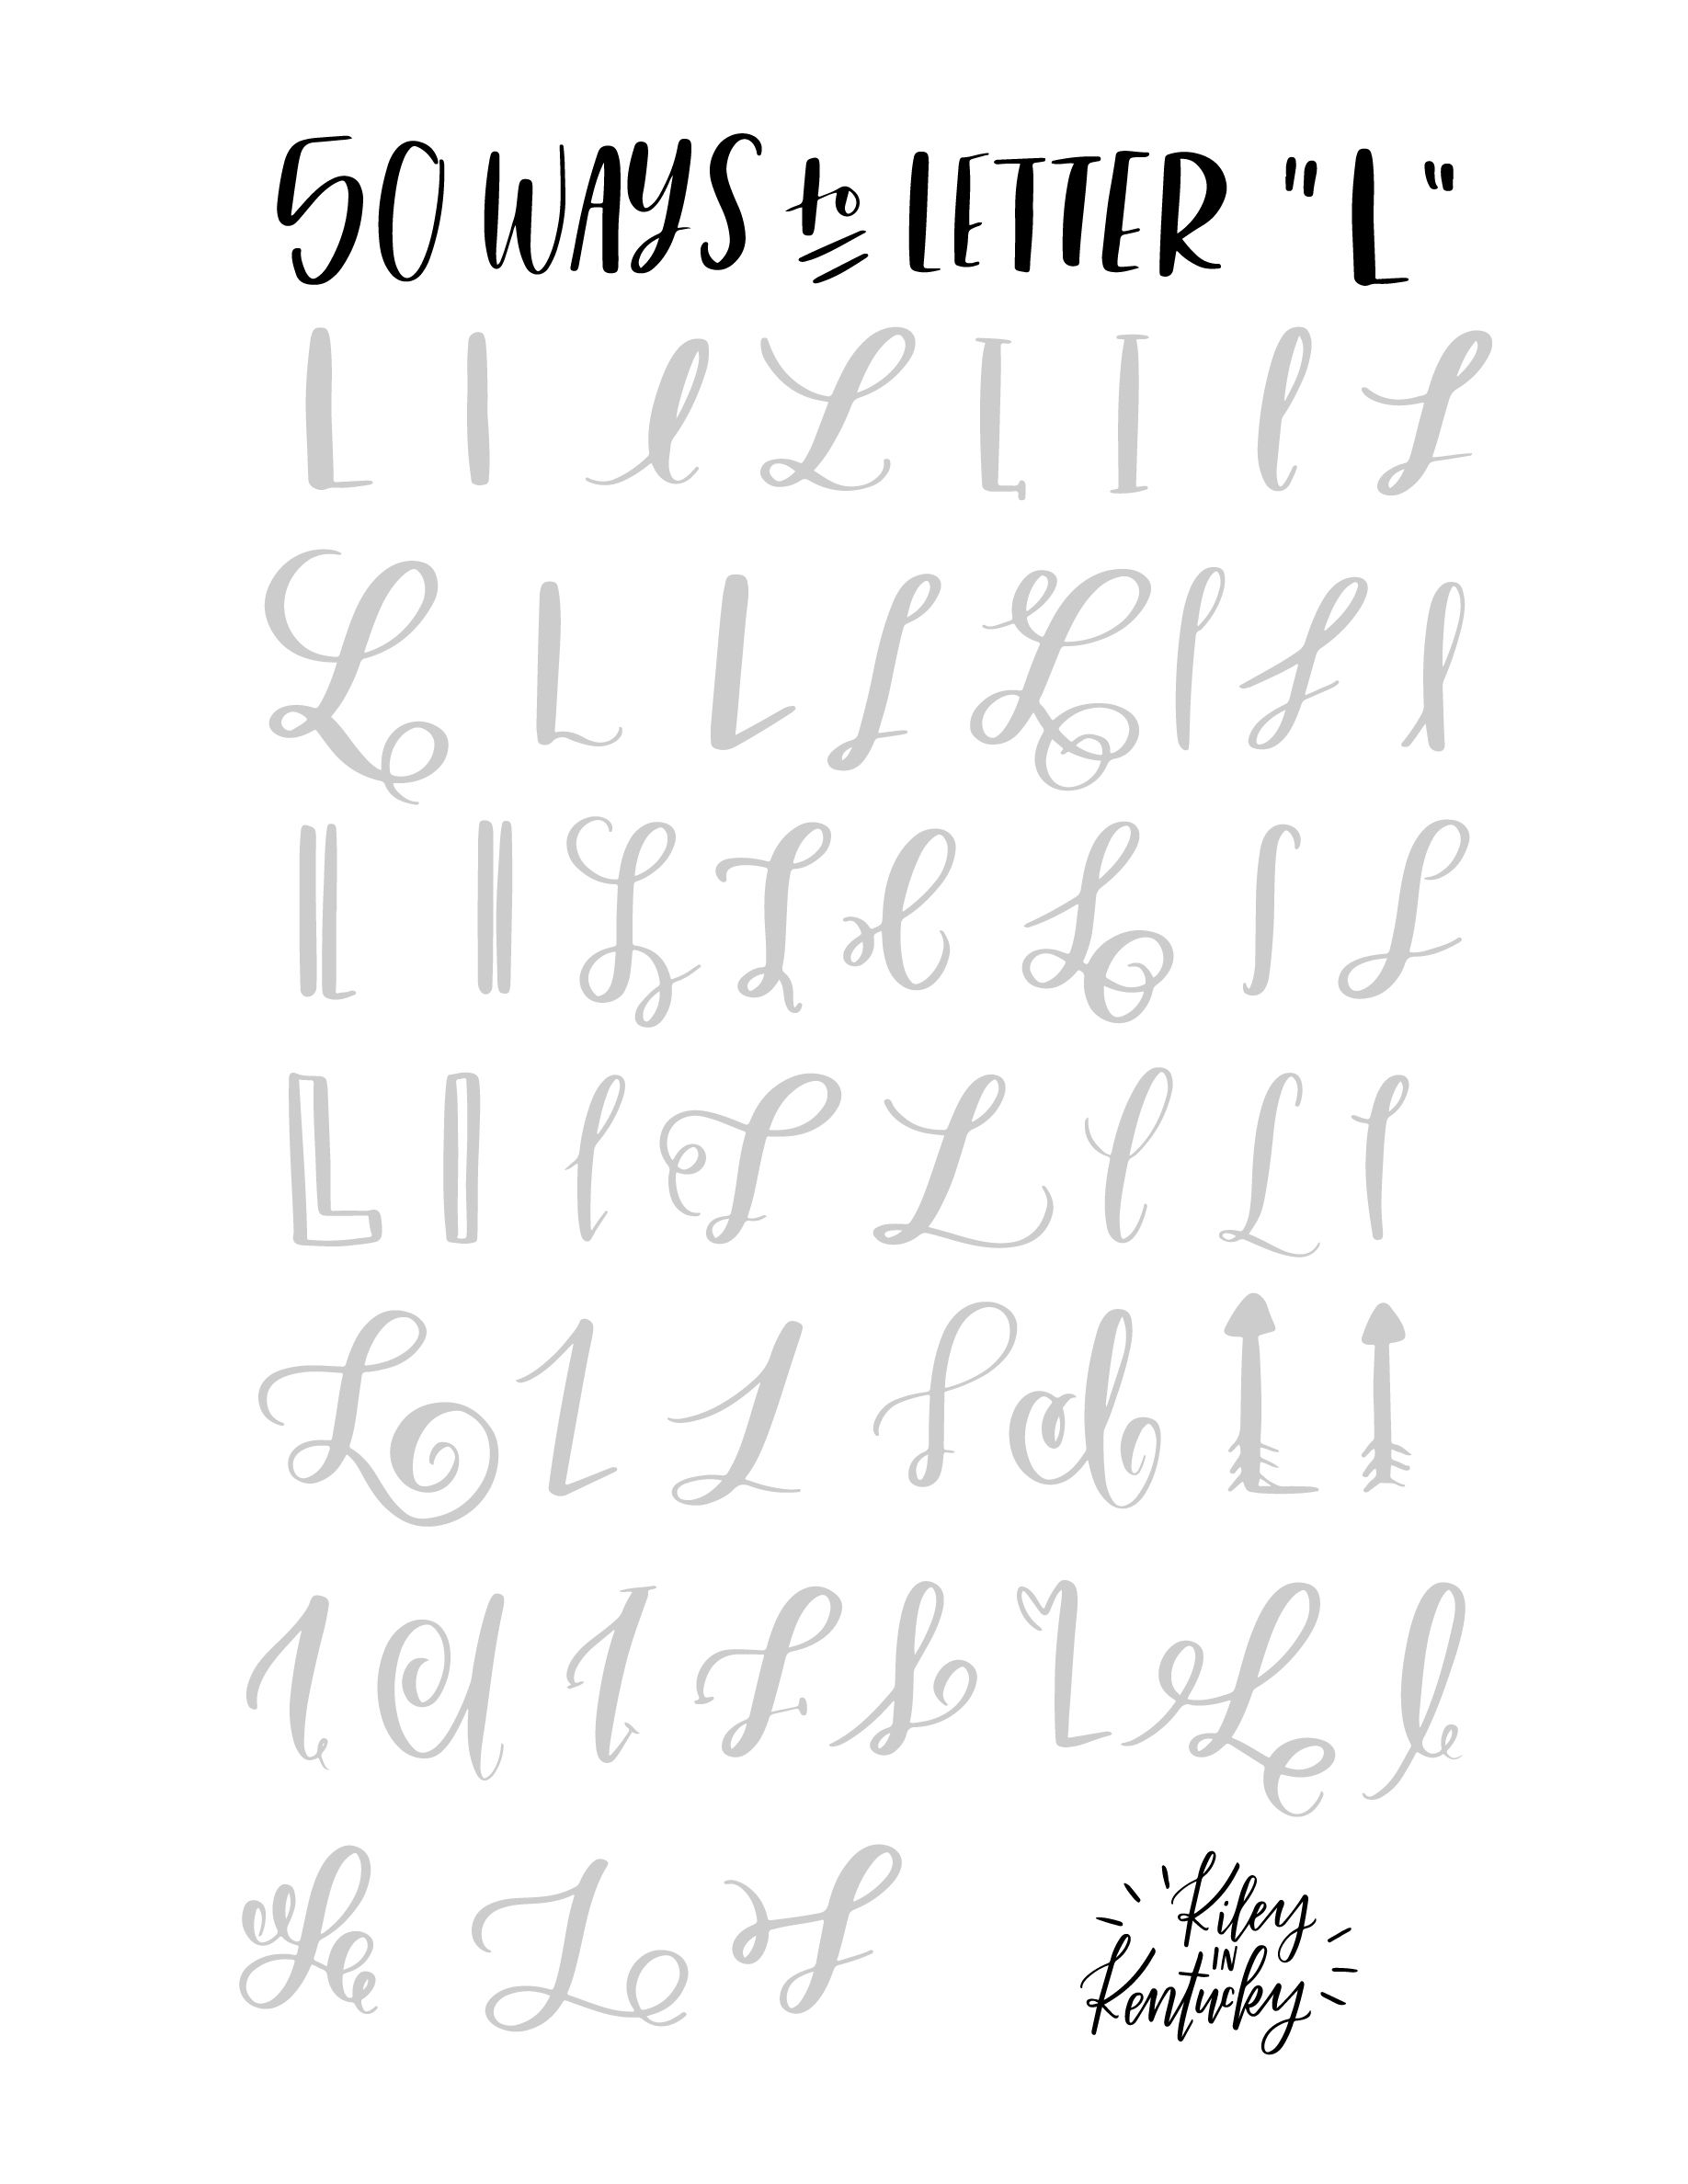 50 WAYS to LETTER "L"
L l l L L l l L
L L L L L l L l
L l L L l L l L
L l l L L l L l
L L L L l L l
l l l L L L L l
L L L
Kiley
IN
Kentucky